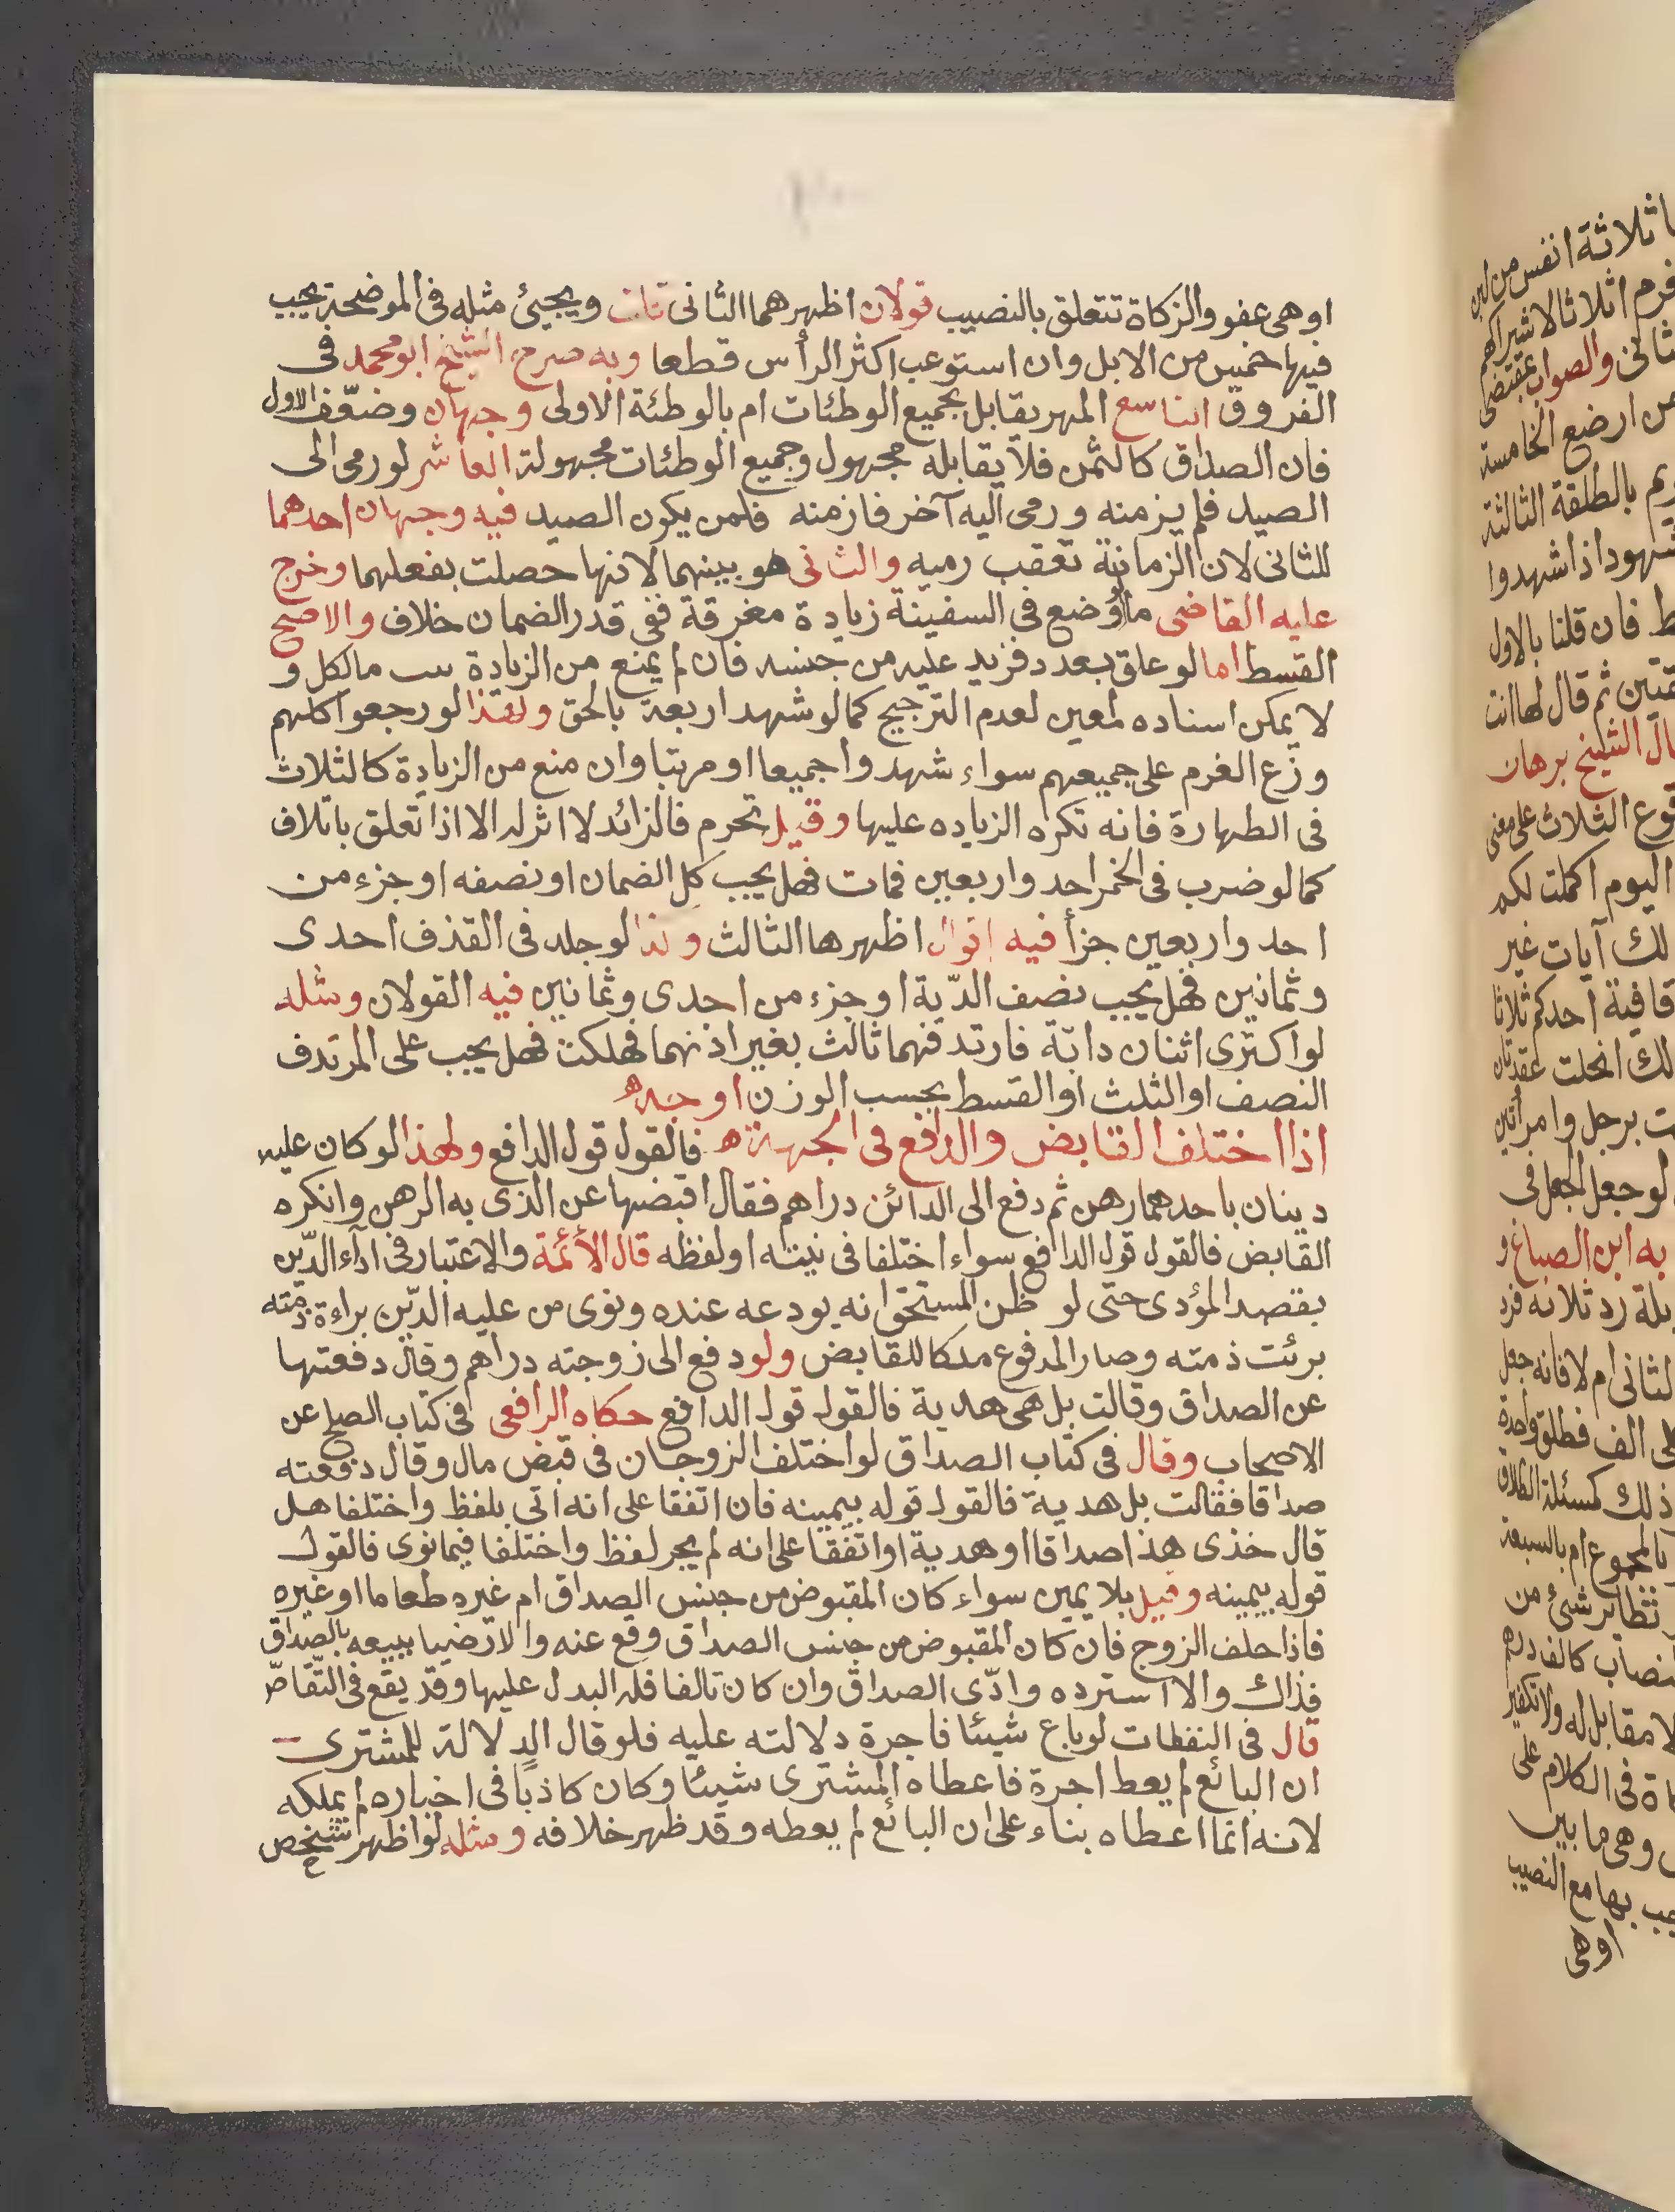 او هى عفو والزكاة تتعلق بالنصيب قولان اظهرهما الثانى قلت ويجيئ مثله فى الموضحة يجب
فيها خمس من الابل وان استوعب اكثر الرأس قطعا وبه صرح الشيخ ابو محمد فى
الفروق التاسع المهر يقابل بجميع الوطئات ام بالوطئة الاولى وجهان وضعّف الاول
فان الصداق كالثمن فلا يقابله مجهول وجميع الوطئات مجهولة العاشر لو رمى الى
الصيد فلم يزمنه ورمى اليه آخر فازمنه فلمن يكون الصيد فيه وجهان احدهما
للثانى لان الزمانة تعقب رميه والثانى هو بينهما لانها حصلت بفعلهما وخرج
عليه القاضى ما وُضع فى السفينة زيادة مغرقة ففى قدر الضمان خلاف والاصح
القسط اما لو علق بعدد فزيد عليه من جنسه فان لم يمنع من الزيادة مالكل و
لا يمكن اسناده لمعين لعدم الترجيح كما لو شهد اربعة بالحق ولهذا لو رجعوا كلهم
وزع الغرم على جميعهم سواء شهدوا جميعا او مرتبا وان منع من الزيادة كالثلاث
فى الطهارة فانه تكره الزياده عليها وقيل تحرم فالزائد لا اثر له الا اذا تعلق باتلاف
كما لو ضرب فى الخمر احد واربعين فمات فهل يجب كل الضمان او نصفه او جزء من
احد واربعين جزأ فيه اقوال اظهرها الثالث وكذا لو جلد فى القذف احدى
وثمانين فهل يجب نصف الدّية او جزء من احدى وثمانين فيه القولان ومثله
لو اكترى اثنان دابّة فارتدفهما ثالث بغير اذنهما فهلكت فهل يجب على المرتدف
النصف او الثلث او القسط بحسب الوزن اوجه
اذا اختلف القابض والدافع فى الجهة فالقول قول الدافع ولهذا لو كان عليه
دينان باحدهما رهن ثم دفع الى الدائن دراهم فقال اقبضها عن الذى به الرهن وانكره
القابض فالقول قول الدافع سواء اختلفا فى نيته او لفظه قال الأئمة والاعتبار فى اداء الدّين
بقصد المؤدى حتى لو ظن المستحق انه يودعه عنده ونوى من عليه الدّين براءة ذمته
برئت ذمته وصار المدفوع ملكا للقابض ولو دفع الى زوجته دراهم وقال دفعتها
عن الصداق وقالت بل هى هدية فالقول قول الدافع حكاه الرافعى فى كتاب الصلح عن
الاصحاب وقال فى كتاب الصداق لو اختلف الزوجان فى قبض مال وقال دفعته
صداقا فقالت بل هدية فالقول قوله بيمينه فان اتفقا على انه اتى بلفظ واختلفا هل
قال خذى هذا صداقا او هدية او اتفقا على انه لم يجر لفظ واختلفا فيما نوى فالقول
قوله بيمينه وقيل بلا يمين سواء كان المقبوض من جنس الصداق ام غيره طعاما او غيره
فاذا حلف الزوج فان كان المقبوض من جنس الصداق وقع عنه والا رضيا ببيعه بالصداق
فذاك والا استرده وادّى الصداق وان كان تالفا فله البدل عليها وقد يقع فى التّقاصّ
قال فى النفقات لو باع شيئا فاجرة دلالته عليه فلو قال الدلالة للمشترى
ان البائع لم يعط اجرة فاعطاه المشترى شيئا وكان كاذبا فى اخباره لم يملكه
لانه انما اعطاه بناء على ان البائع لم يعطه وقد ظهر خلافه ومثله لو اظهر شخص